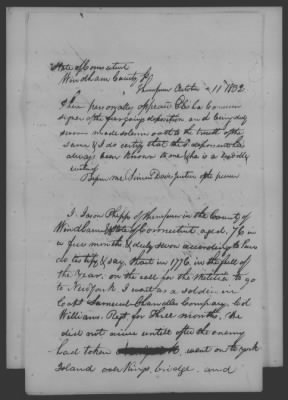 State of Connecticut
Windham County ss
Thompson October 11 1832
Then personally appeared Elisha Converse
signer of the foregoing deposition and being duly
sworn made solemn oath to the truth of the
same & I do certify that the deponent has
always been known to me & he is a
Before me Simon Davis Justice of the peace
I. Jason Phipps of Thompson in the County of
Windham & State of Connecticut aged 76 in
a few months & duly sworn according to law
do testify & say, that in 1776 in the fall of
the year, on the call for the Militia to go
to New York I went as a soldier in
Capt Samuel Chandler Company Col
Williams Regt for three months. We
did not arrive untill after the enemy
had taken went on the york
Island over Kings bridge and